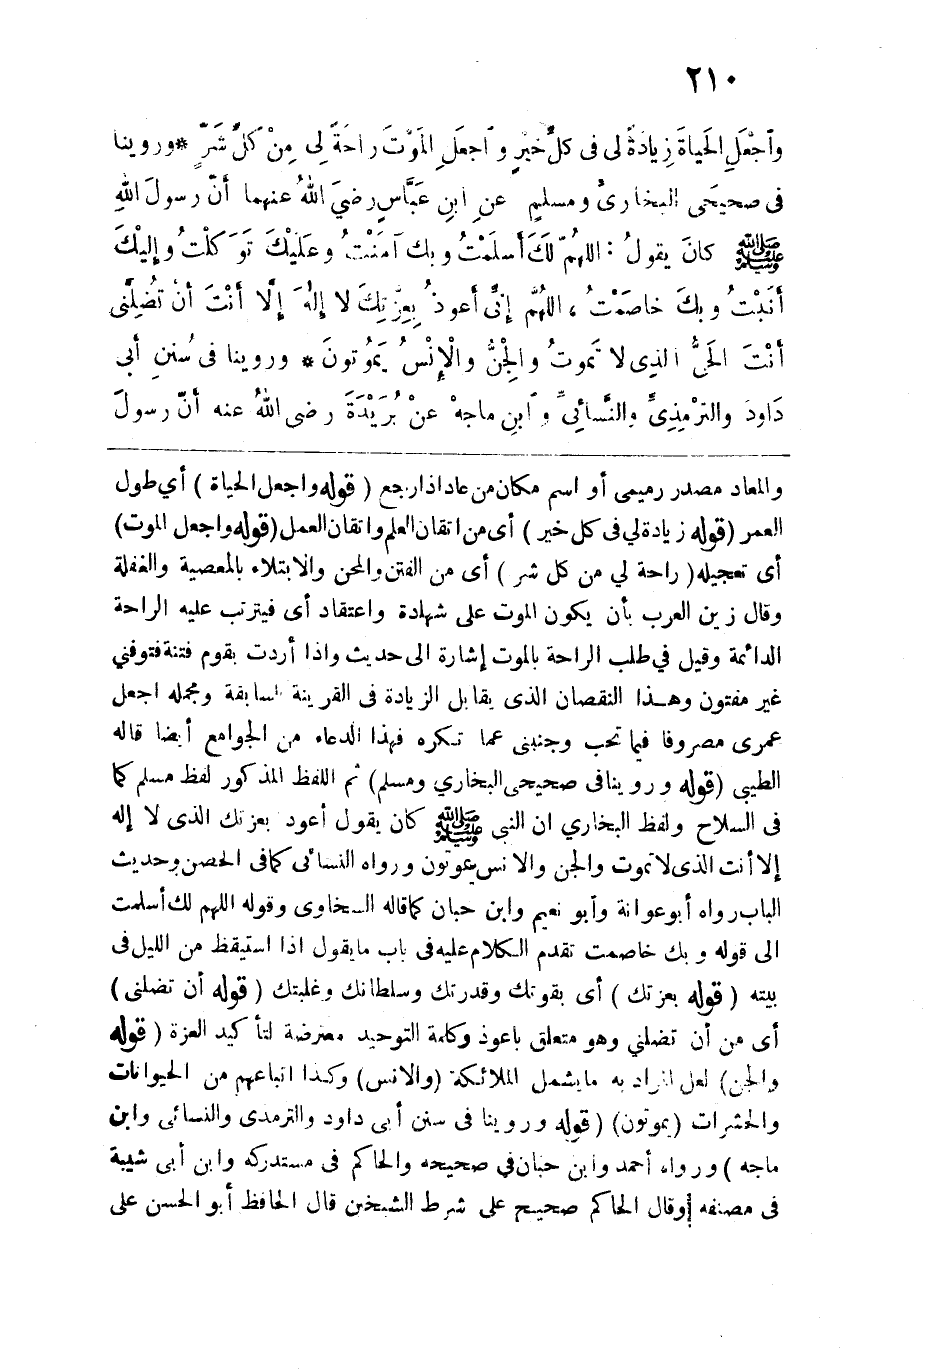 ٢١٠
وَاجْعَلِ الحَياةَ زِيادَةً لى فى كلّ خَيْرٍ وَاجعَلِ المَوْتَ راحَةً لى مِنْ كلّ شَرّ * وروينا
فى صحيحَى البخارىّ ومسلمٍ عنِ ابنِ عَبَّاسٍ رضيَ اللهُ عنهما أنّ رسولَ اللهِ
ﷺ كانَ يقولُ : اللهمّ لَكَ أسلَمْتُ وبك آمَنْتُ وعَلَيْكَ تَوَكلْتُ وإلَيْكَ
أنَبْتُ وبكَ خاصَمْتُ ، اللهُمّ إنّى أعوذُ بِعِزّتِكَ لا إلهَ إلّا أنْتَ أنْ تُضِلّنى
أنْتَ الحَىُّ الذِى لا تَموتُ والجِنُّ والْإنْسُ يَمُوتونَ * وروينا فى سُننِ أبى
دَاودَ والترْمِذِىِّ والنَّسائِىِّ وَابنِ ماجهْ عنْ بُرَيْدَةَ رضى اللهُ عنه أنّ رسولَ
والمعاد مصدر رميمى أو اسم مكان من عاد اذا رجع ( قوله واجعل الحياة ) أي طول
العمر (قوله زيادة لي فى كل خير ) أى من اتقان العلم واتقان العمل (قوله واجعل الموت)
أى تعجيله( راحة لي من كل شر ) أى من الفتن والمحن والابتلاء بالمعصية والغفلة
وقال زين العرب بأن يكون الموت على شهادة واعتقاد أى فيترتب عليه الراحة
الدائمة وقيل في طلب الراحة بالموت إشارة الى حديث واذا أردت بقوم فتنة فتوفني
غير مفتون وهــذا النقصان الذى يقابل الزيادة فى القرينة السابقة ومجمله اجعل
عمرى مصروفا فيما تحب وجنبنى عما تـكره فهذا الدعاء من الجوامع أيضا قاله
الطيبي (قوله وروينا فى صحيحى البخاري ومسلم) ثم اللفظ المذكور لفظ مسلم كما
فى السلاح ولفظ البخاري ان النبى ﷺ كان يقول أعوذ بعزتك الذى لا إله
إلا أنت الذى لا تموت والجن والانس يموتون ورواه النسائى كما فى الحصن وحديث
الباب رواه أبو عوانة وأبو نعيم وابن حبان كما قاله السخاوى وقوله اللهم لك أسلمت
الى قوله وبك خاصمت تقدم الـكلام عليه فى باب ما يقول اذا استيقظ من الليل فى
بيته ( قوله بعزتك ) أى بقوتك وقدرتك وسلطانك وغلبتك ( قوله أن تضلنى )
أى من أن تضلني وهو متعلق باعوذ وكلمة التوحيد معترضة لتأكيد العزة ( قوله
والجن) لعل المراد به ما يشمل الملائـكة (والانس) وكذا اتباعهم من الحيوانات
والحشرات (يموتون) ( قوله وروينا فى سنن أبى داود والترمذى والنسائى وابن
ماجه ) ورواه أحمد وابن حبان في صحيحه والحاكم فى مستدركه وابن أبى شيبة
فى مصنفه وقال الحاكم صحيح على شرط الشيخين قال الحافظ أبو الحسن على